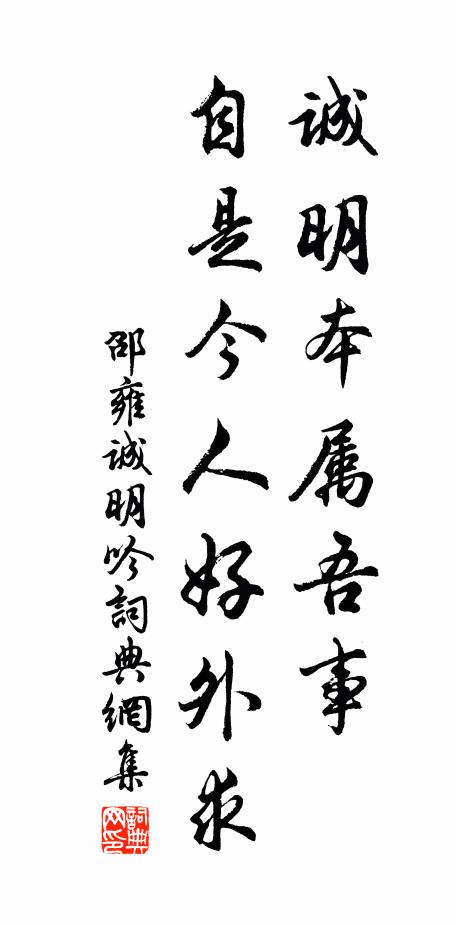 诚明本属吾事
自是今人好外求
邵雍诚明吟詞典網集
詞典网印